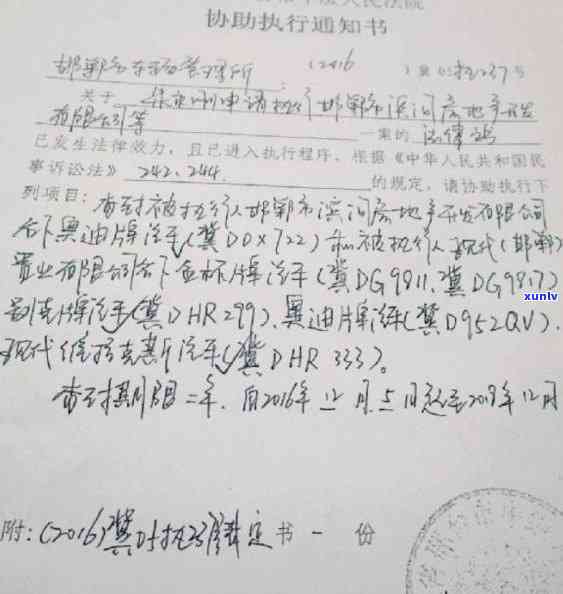 人民法院
协助执行通知书
邯郸市车辆管理所:(2016)冀 执237号
关于 申请执行邯郸市滨河房地产开发
有限公司等 一案的 法律文书
已发生法律效力,且已进入执行程序。根据《中华人民共和国民
事诉讼法》242、244. 的规定,请协助执行下
列项目:查封被执行人邯郸市滨河房地产开发有限公司
名下奥迪牌汽车(冀D0X722)和被执行人现代(邯郸)
置业有限公司名下金杯牌汽车(冀DG9911、冀DG9917)
别克牌汽车(冀DHR299)、奥迪牌汽车(冀D952QV)、
现代维拉克斯汽车(冀DHR333)。
查封期限二年.自2016年12月5日起至2018年12月
附:(2016)冀 执237 裁定书一份
xunlv